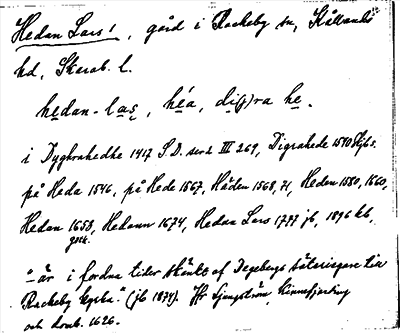 Hedan Lars!, gård i Rackeby sn, Kållands
hd, Skarab. l.
hedan-las, héa, di(j)ra he.
i Dyghrahedhe 1417 S.D. ser 2 III 269, Digrahede 1540 Skjbs.
på Heda 1546, på Hede 1567, Häden 1568, 71, Heden 1580, 1660,
Hedan 1658, Hedann 1674, Hedan Lars 1777 jb, 1896 kb,
gsk.
"är i fordna tider skänkt af Degebergs säteriegare till
Rackeby kyrka." (jb 1874). Hr Ljungström, Kinnefjerding
och domb. 1626.